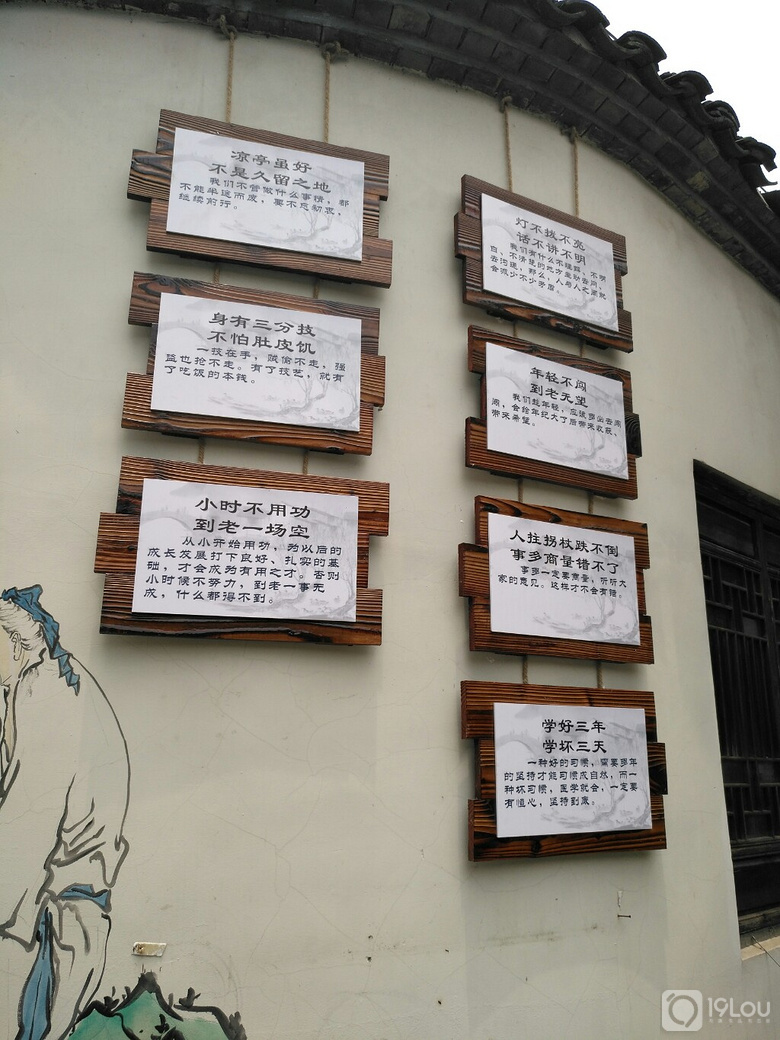 凉亭虽好
不是久留之地
我们不管做什么事情，都
不能半途而废，要不忘初衷，
继续前行。
身有三分技
不怕肚皮饥
一技在手，贼偷不走，强
盗也抢不走。有了技艺，就有
了吃饭的本钱。
小时不用功
到老一场空
从小开始用功，为以后的
成长发展打下良好、扎实的基
础，才会成为有用之才。否则
小时候不努力，到老一事无
成，什么都得不到。
灯不拨不亮
话不讲不明
我们有什么不理解、不明
白、不清楚的地方主动去问，
去沟通，那么，人与人之间就
会减少不少矛盾。
年轻不闯
到老无望
我们趁年轻，应该多出去闯
闯，会给年纪大了后带来收获、
带来希望。
人拄拐杖跌不倒
事多商量错不了
事多一定要商量，听听大
家的意见。这样才不会有错。
学好三年
学坏三天
一种好的习惯，需要多年
的坚持才能习惯成自然，而一
种坏习惯，一学就会，一定要
有恒心，坚持到底。
19Lou